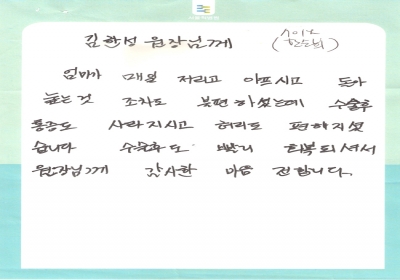 김한성 원장님께
엄마가 매일 저리고 아프시고 돌아
눕는것 조차도 불편하셨는데 수술후
통증도 사라지시고 허리도 편해지셨
습니다 수술후도 빨리 회복되셔서
원장님께 감사한 마음 전합니다.